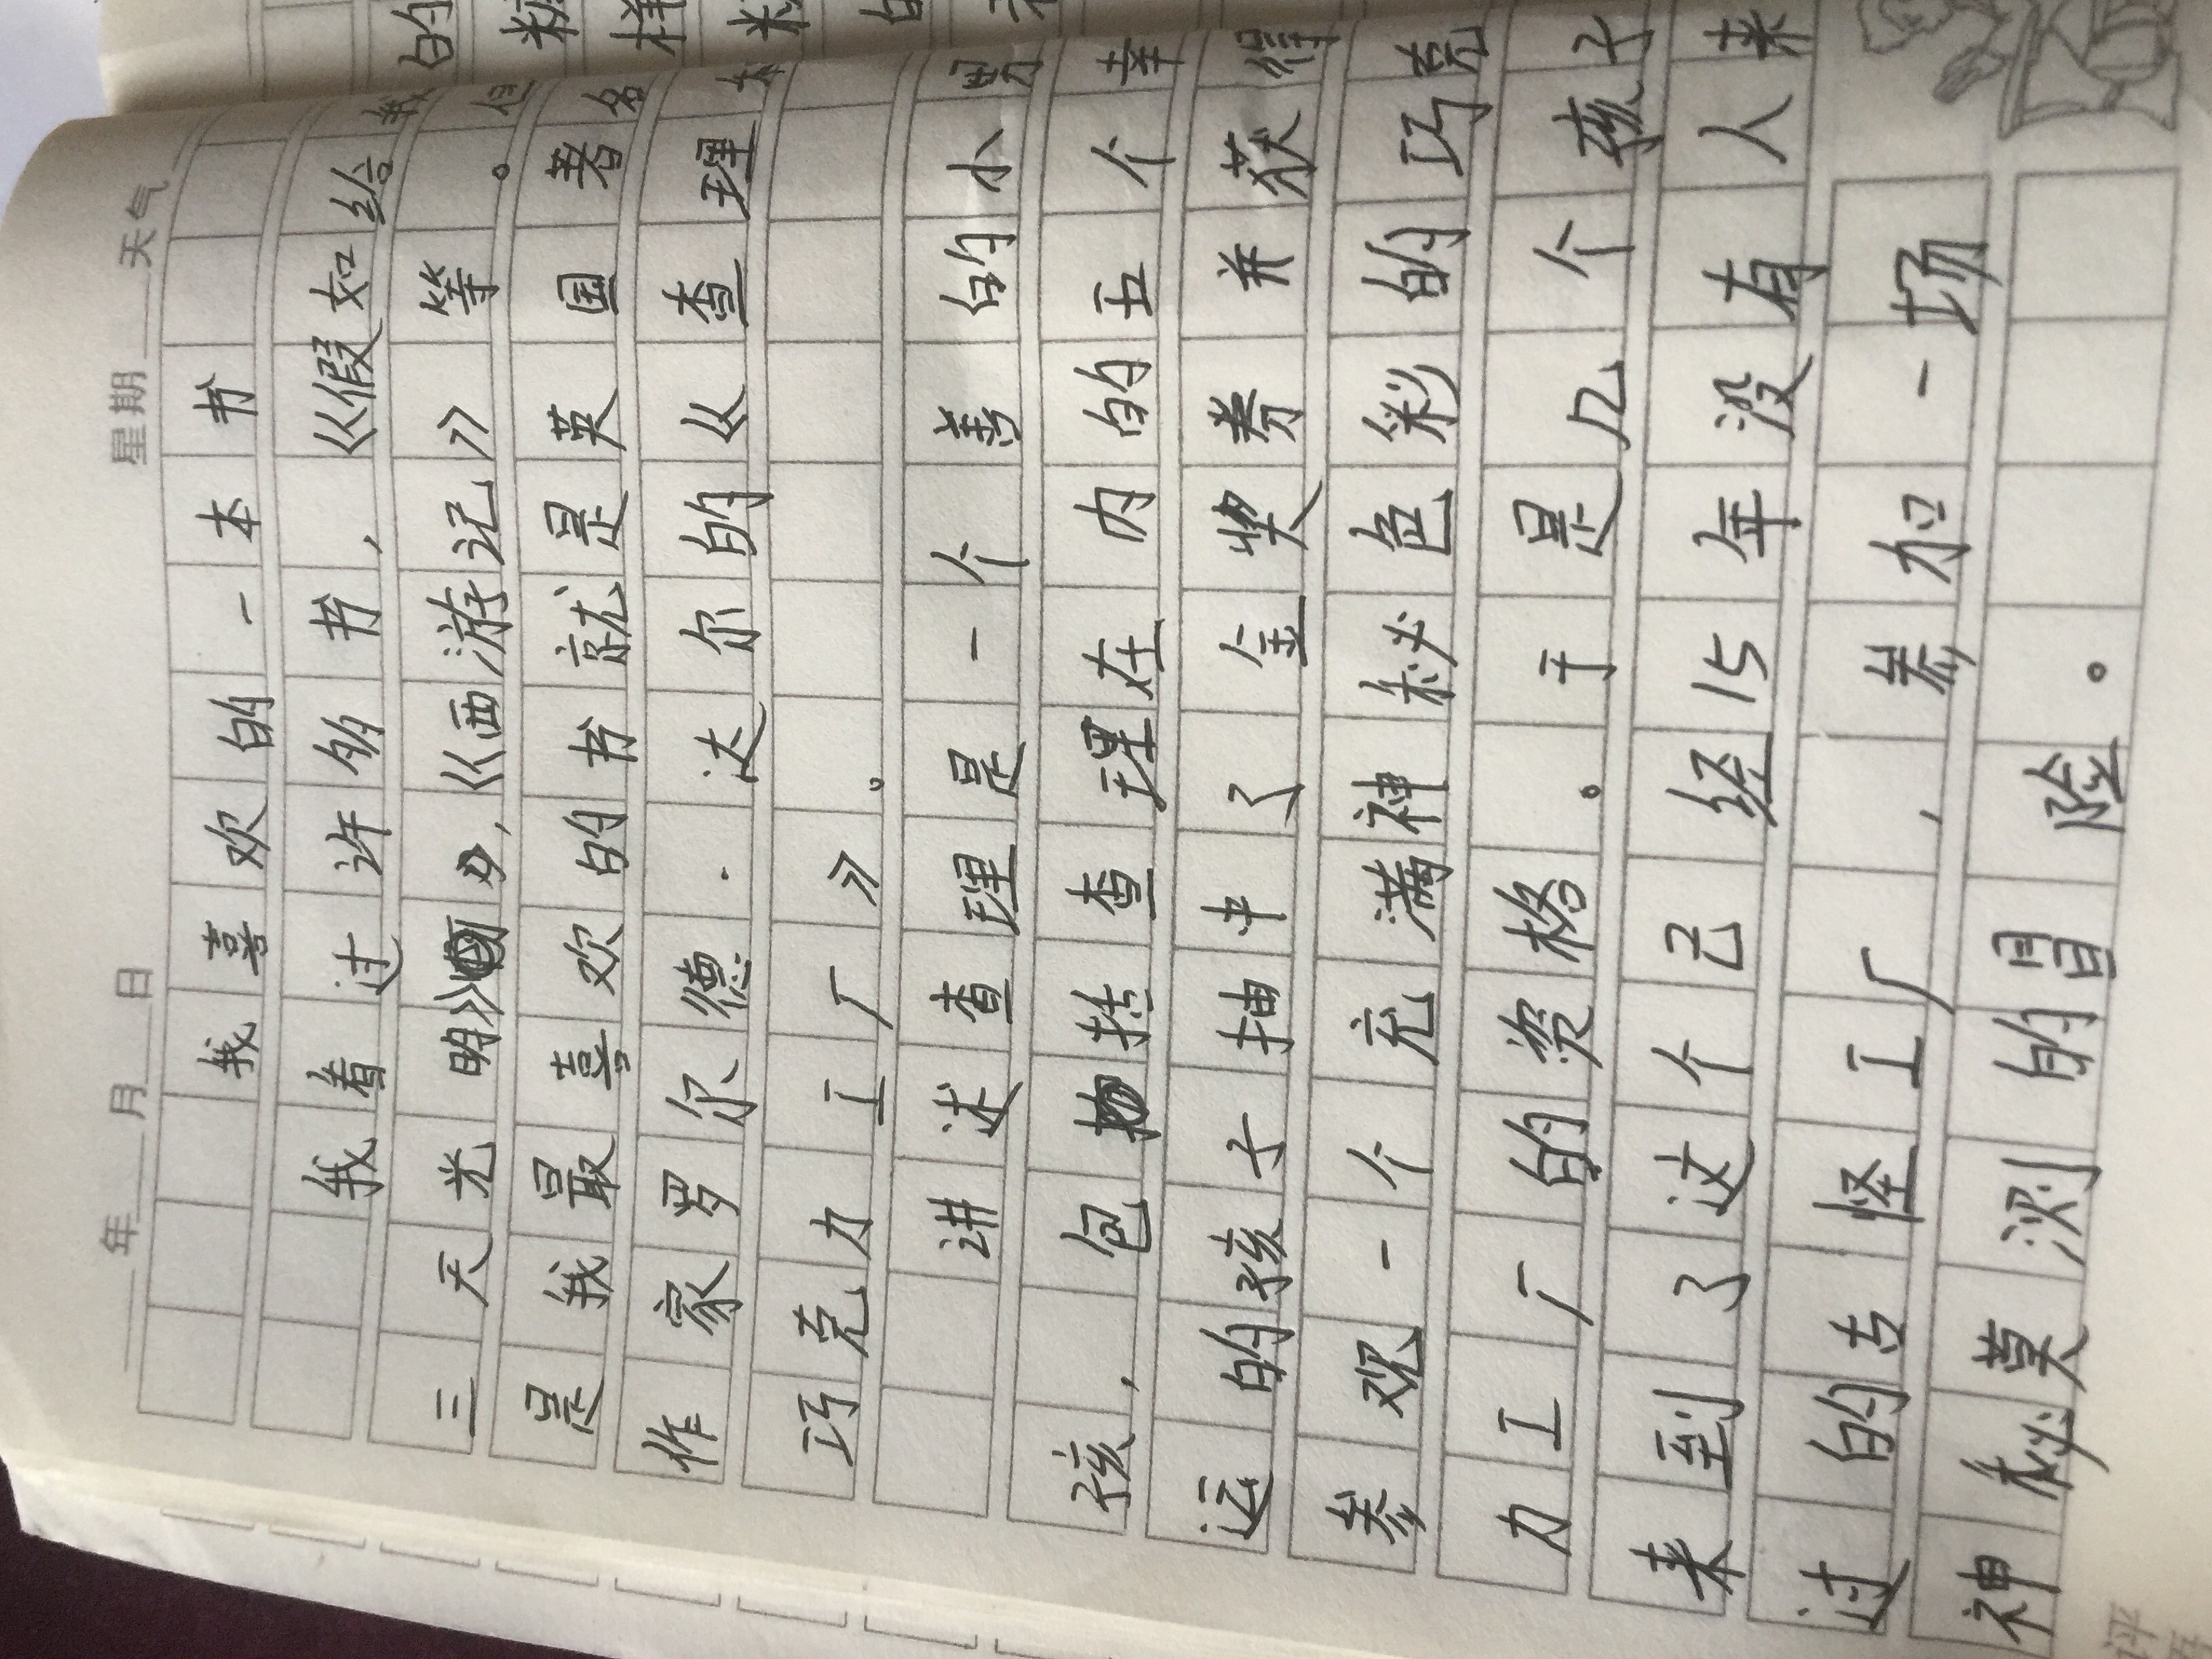 年 月 日 星期 天气
我喜欢的一本书
我看过许多书，《假如给我
三天光明》，《西游记》等。但
是我最喜欢的书就是英国著名
作家罗尔德·达尔的《查理
巧克力工厂》。
讲述查理是一个善的小男
孩，包括查理在内的五个幸
运的孩子抽中了金奖券并获得
参观一个充满神秘色彩的巧克
力工厂的资格。于是几个孩子
来到了这个已经15年没有人来
过的古怪工厂，参加一场
神秘莫测的冒险。